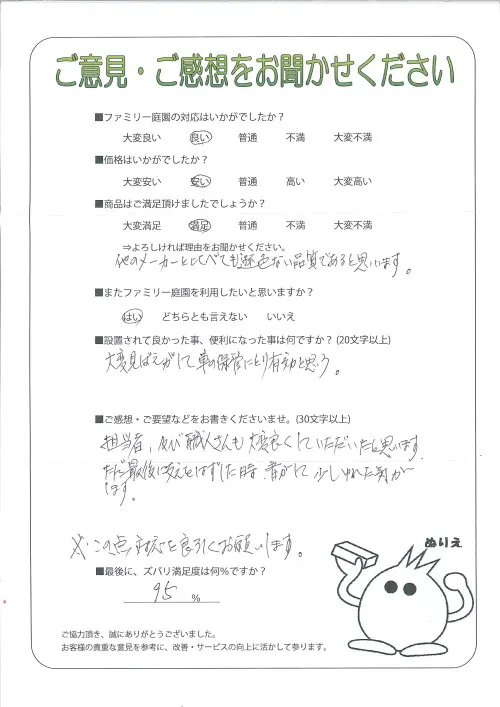 ご意見・ご感想をお聞かせください
■ファミリー庭園の対応はいかがでしたか？
大変良い 良い 普通 不満 大変不満
■価格はいかがでしたか？
大変安い 安い 普通 高い 大変高い
■商品はご満足頂けましたでしょうか？
大変満足 満足 普通 不満 大変不満
⇒よろしければ理由をお聞かせください。
他のメーカーと比べても遜色ない品質であると思います。
■またファミリー庭園を利用したいと思いますか？
はい どちらとも言えない いいえ
■設置されて良かった事、便利になった事は何ですか？(20文字以上)
大変見ばえがして車の保管にとり有効と思う。
■ご感想・ご要望などをお書きくださいませ。(30文字以上)
担当者、及び職人さんも大変良くしていただいたと思います。
ただ最後に支えをはずした時、音がして少しゆれた気が
します。
※この点、対応を良引くお願いします。
■最後に、ズバリ満足度は何%ですか？
95 %
ぬりえ
ご協力頂き、誠にありがとうございました。
お客様の貴重な意見を参考に、改善・サービスの向上に活かして参ります。